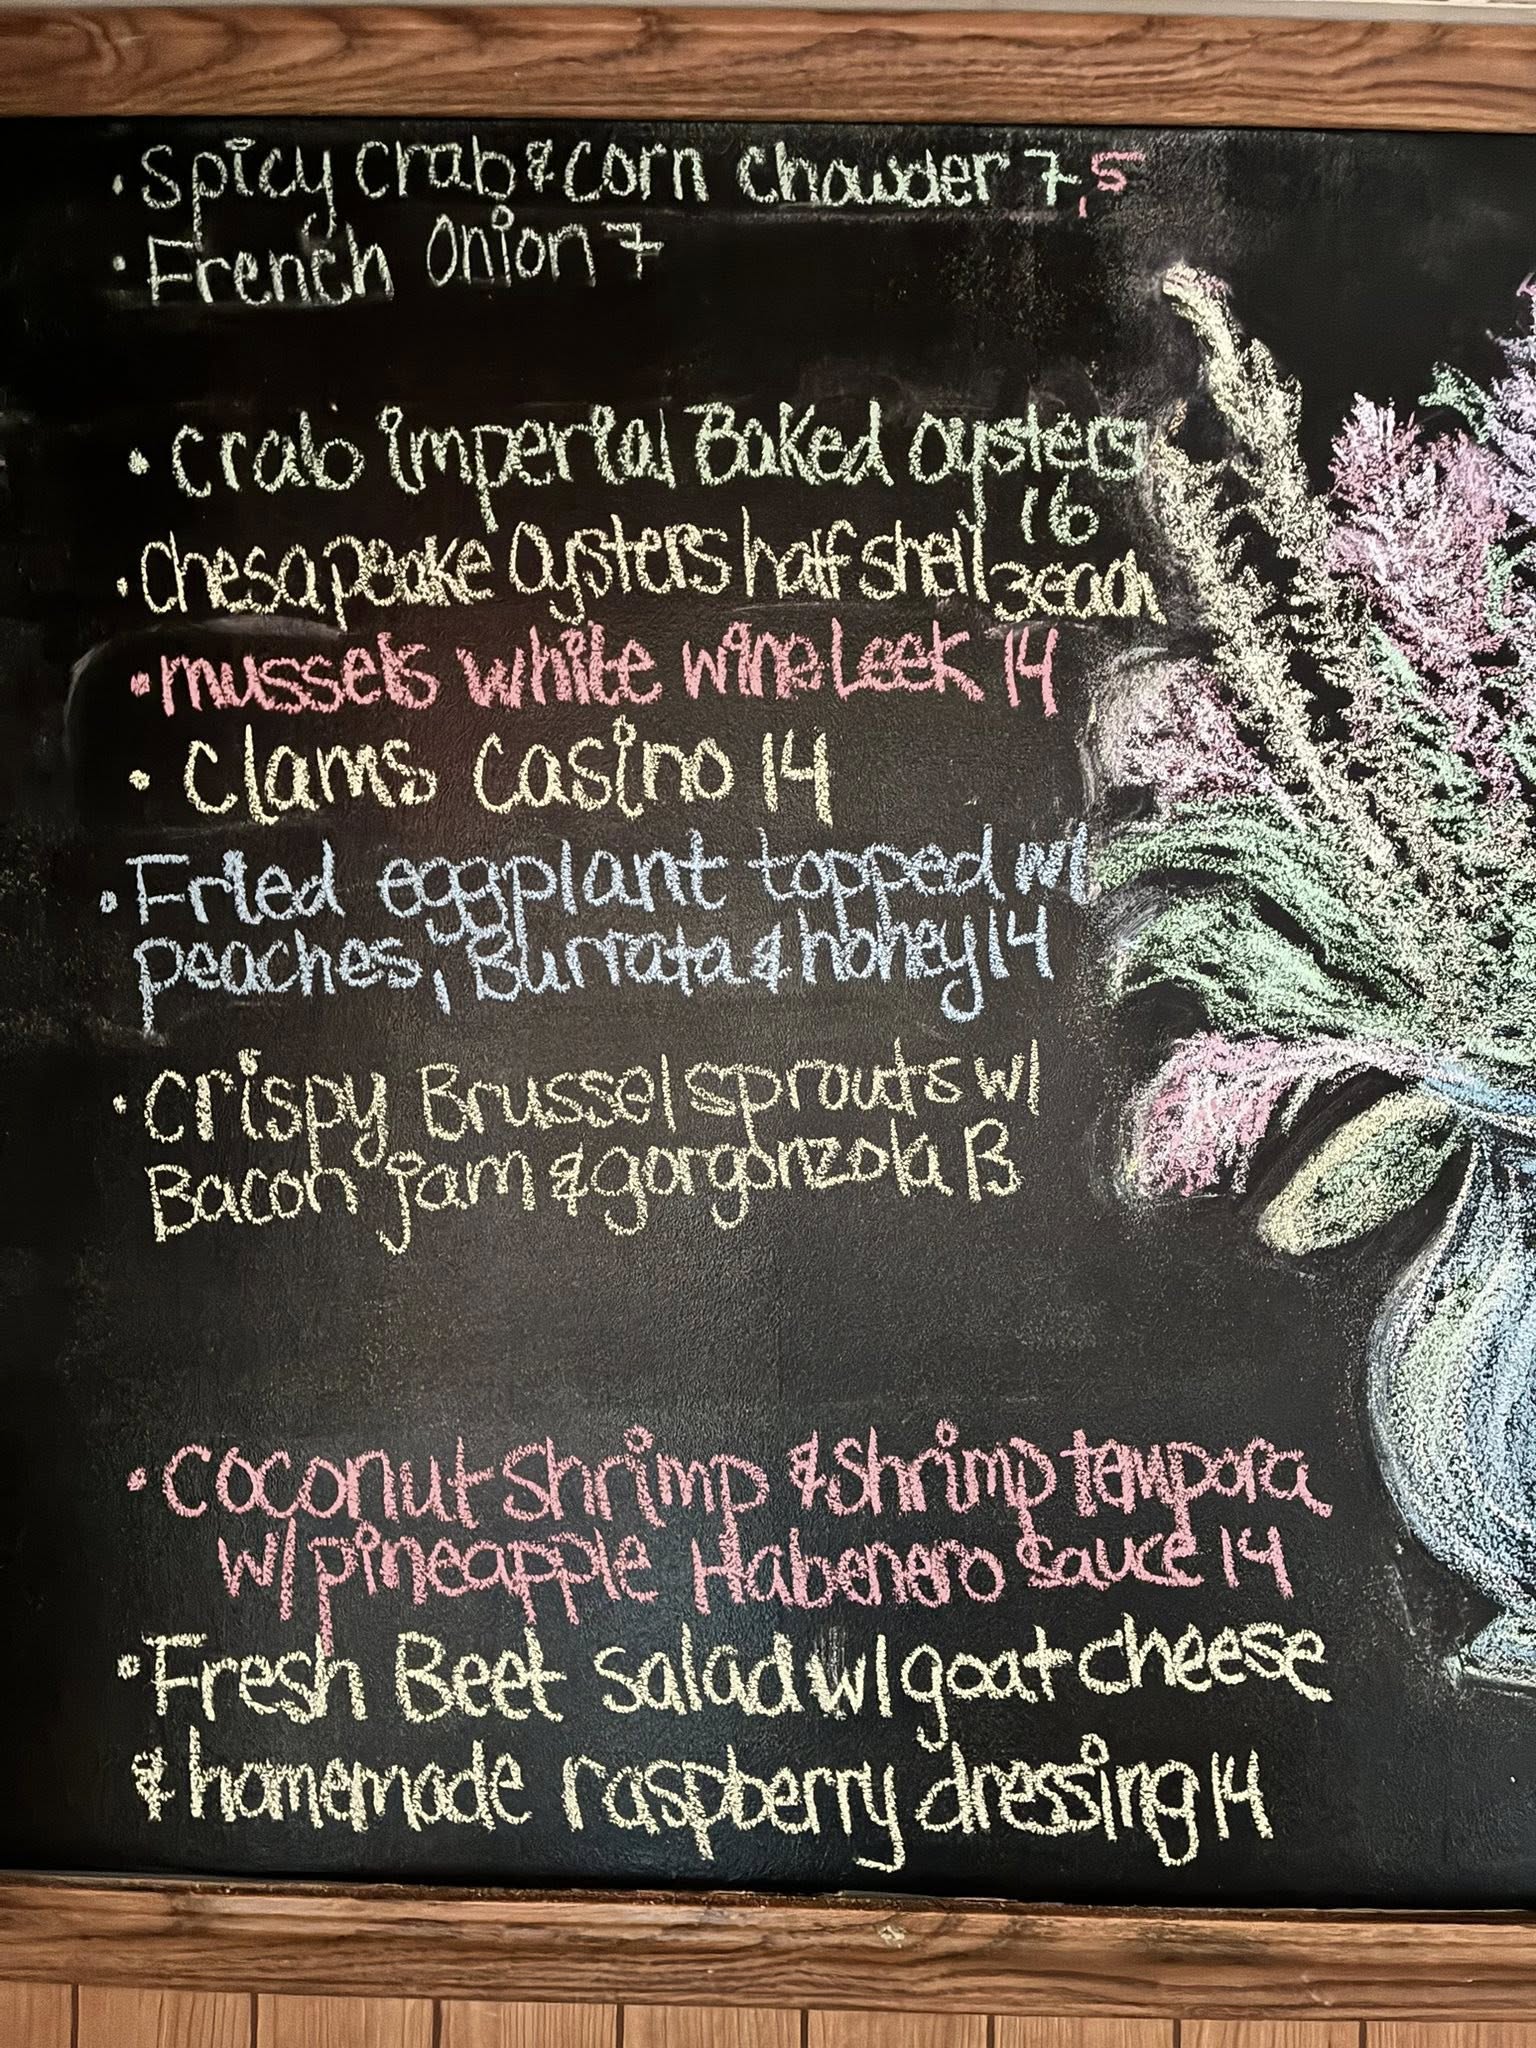 • Spicy Crab & Corn Chowder 7,5
• French Onion 7
• Crab imperial Baked Oysters
16
• Chesapeake Oysters half shell 3 each
• mussels white wine Leek 14
• Clams Casino 14
• Fried eggplant topped w/
peaches, Burrata & honey 14
• Crispy Brussel sprouts w/
Bacon jam & gorgonzola 13
• Coconut shrimp & shrimp tempora
w/ pineapple Habenero sauce 14
• Fresh Beet Salad w/ goat cheese
& homemade raspberry dressing 14